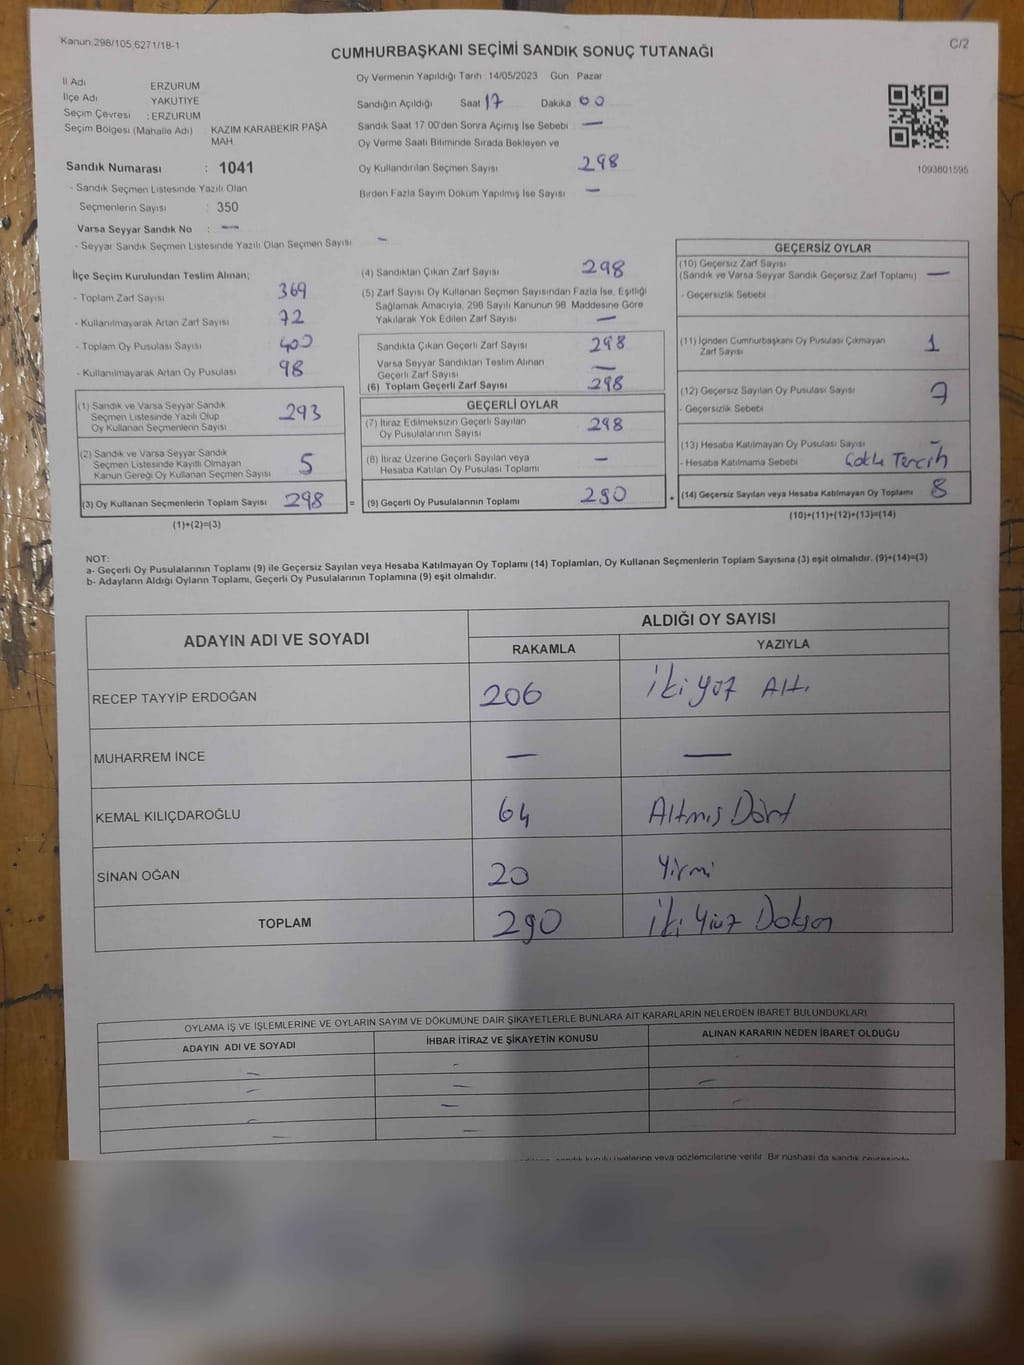 Kanun:298/105,6271/18-1
C/2
CUMHURBAŞKANI SEÇİMİ SANDIK SONUÇ TUTANAĞI
İl Adı ERZURUM
İlçe Adı YAKUTİYE
Seçim Çevresi : ERZURUM
Seçim Bölgesi (Mahalle Adı) KAZIM KARABEKİR PAŞA MAH
Sandık Numarası : 1041
- Sandık Seçmen Listesinde Yazılı Olan
Seçmenlerin Sayısı : 350
Varsa Seyyar Sandık No : —
- Seyyar Sandık Seçmen Listesinde Yazılı Olan Seçmen Sayısı —
Oy Vermenin Yapıldığı Tarih 14/05/2023 Gün Pazar
Sandığın Açıldığı Saat 17 Dakika 00
Sandık Saat 17 00'den Sonra Açımış İse Sebebi —
Oy Verme Saati Bitiminde Sırada Bekleyen ve
Oy Kullandırılan Seçmen Sayısı 298
Birden Fazla Sayım Döküm Yapılmış İse Sayısı —
1093801595
İlçe Seçim Kurulundan Teslim Alınan;
- Toplam Zarf Sayısı 369
- Kullanılmayarak Artan Zarf Sayısı 72
- Toplam Oy Pusulası Sayısı 400
- Kullanılmayarak Artan Oy Pusulası 98
(1) Sandık ve Varsa Seyyar Sandık
Seçmen Listesinde Yazılı Olup
Oy Kullanan Seçmenlerin Sayısı 293
(2) Sandık ve Varsa Seyyar Sandık
Seçmen Listesinde Kayıtlı Olmayan
Kanun Gereği Oy Kullanan Seçmen Sayısı 5
(3) Oy Kullanan Seçmenlerin Toplam Sayısı 298 =
(1)+(2)=(3)
(4) Sandıktan Çıkan Zarf Sayısı 298
(5) Zarf Sayısı Oy Kullanan Seçmen Sayısından Fazla İse, Eşitliği
Sağlamak Amacıyla, 298 Sayılı Kanunun 98. Maddesine Göre
Yakılarak Yok Edilen Zarf Sayısı —
Sandıkta Çıkan Geçerli Zarf Sayısı 298
Varsa Seyyar Sandıktan Teslim Alınan
Geçerli Zarf Sayısı —
(6) Toplam Geçerli Zarf Sayısı 298
GEÇERLİ OYLAR
(7) İtiraz Edilmeksizin Geçerli Sayılan
Oy Pusulalarının Sayısı 298
(8) İtiraz Üzerine Geçerli Sayılan veya
Hesaba Katılan Oy Pusulası Toplamı —
(9) Geçerli Oy Pusulalarının Toplamı 290 +
GEÇERSİZ OYLAR
(10) Geçersiz Zarf Sayısı
(Sandık ve Varsa Seyyar Sandık Geçersiz Zarf Toplamı) —
- Geçersizlik Sebebi
(11) İçinden Cumhurbaşkanı Oy Pusulası Çıkmayan
Zarf Sayısı 1
(12) Geçersiz Sayılan Oy Pusulası Sayısı 7
- Geçersizlik Sebebi
(13) Hesaba Katılmayan Oy Pusulası Sayısı —
- Hesaba Katılmama Sebebi Çoklu Tercih
(14) Geçersiz Sayılan veya Hesaba Katılmayan Oy Toplamı 8
(10)+(11)+(12)+(13)=(14)
NOT:
a- Geçerli Oy Pusulalarının Toplamı (9) ile Geçersiz Sayılan veya Hesaba Katılmayan Oy Toplamı (14) Toplamları, Oy Kullanan Seçmenlerin Toplam Sayısına (3) eşit olmalıdır. (9)+(14)=(3)
b- Adayların Aldığı Oyların Toplamı, Geçerli Oy Pusulalarının Toplamına (9) eşit olmalıdır.
ADAYIN ADI VE SOYADI
ALDIĞI OY SAYISI
RAKAMLA YAZIYLA
RECEP TAYYİP ERDOĞAN 206 İki yüz Altı
MUHARREM İNCE — —
KEMAL KILIÇDAROĞLU 64 Altmış Dört
SİNAN OĞAN 20 Yirmi
TOPLAM 290 İki Yüz Doksan
OYLAMA İŞ VE İŞLEMLERİNE VE OYLARIN SAYIM VE DÖKÜMÜNE DAİR ŞİKAYETLERLE BUNLARA AİT KARARLARIN NELERDEN İBARET BULUNDUKLARI
ADAYIN ADI VE SOYADI İHBAR İTİRAZ VE ŞİKAYETİN KONUSU ALINAN KARARIN NEDEN İBARET OLDUĞU
— — —
— — —
— — —
— —
sandık kurulu üyelerine veya gözlemcilerine verilir. Bir nüshası da sandık çevresinde